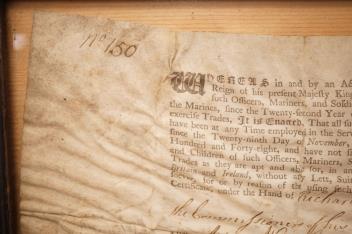 No 150
WHEREAS in and by an Act
Reign of his present Majesty King
such Officers, Mariners, and Soldi
the Marines, since the Twenty-second Year
exercise Trades, It is Enacted, That all su
have been at any Time employed in the Servi
since the Twenty-ninth Day of November,
Hundred and Forty-eight, and have not
and Children of such Officers, Mariners, S
Trades as they are apt and able for, in an
Britain and Ireland, without any Lett, Suit
soever, for or by reason of the using such
Certificate, under the Hand of Richard
the Commissioners of